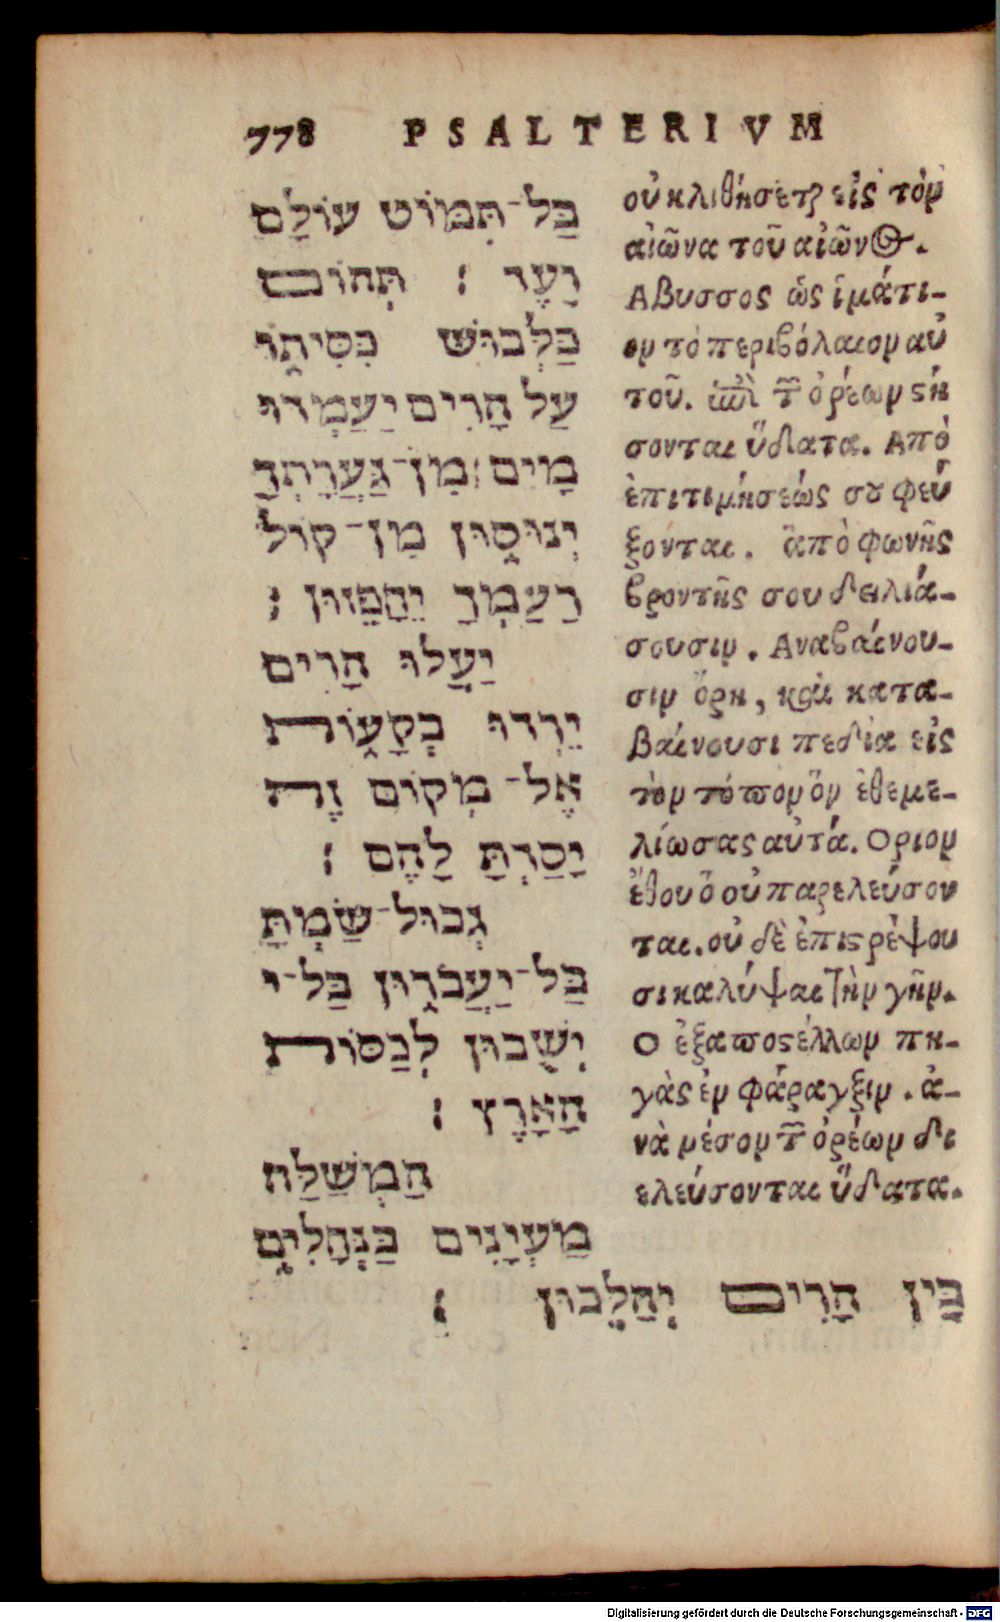 778 PSALTERIVM
בַּל־תִּמּוֹט עוֹלָם
וָעֶד ׃ תְּהוֹם
כַּלְּבוּשׁ כִּסִּיתוֹ
עַל הָרִים יַעַמְדוּ
מָיִם ׃ מִן־גַּעֲרָתְךָ
יְנוּסוּן מִן־קוֹל
רַעַמְךָ יֵחָפֵזוּן ׃
יַעֲלוּ הָרִים
יֵרְדוּ בְקָעוֹת
אֶל־מְקוֹם זֶה
יָסַדְתָּ לָהֶם ׃
גְּבוּל־שַׂמְתָּ
בַּל־יַעֲבֹרוּן בַּל־י
יְשֻׁבוּן לְכַסּוֹת
הָאָרֶץ ׃
הַמְשַׁלֵּחַ
מַעְיָנִים בַּנְּחָלִים
בֵּין הָרִים יְהַלֵּכוּן ׃
οὐ κλιθήσεται εἰς τὸν
αἰῶνα τοῦ αἰῶνος.
Αβυσσος ὡς ἱμάτι-
ον τὸ περιβόλαιον αὐ
τοῦ. ἐπὶ τῶν ὀρέων στή
σονται ὕδατα. Από
ἐπιτιμήσεώς σου φεύ
ξονται. ἀπὸ φωνῆς
βροντῆς σου δειλιά-
σουσιν. Αναβαίνου-
σιν ὄρη, καὶ κατα-
βαίνουσι πεδία εἰς
τὸν τόπον ὃν ἐθεμε-
λίωσας αὐτά. Οριον
ἔθου ὃ οὐ παρελεύσον
ται. οὐ δὲ ἐπιστρέψου
σι καλύψαι τὴν γῆν.
Ο ἐξαποστέλλων πη-
γὰς ἐν φάραγξιν. ἀ-
νὰ μέσον τῶν ὀρέων δι
ελεύσονται ὕδατα.
Digitalisierung gefördert durch die Deutsche Forschungsgemeinschaft - DFG